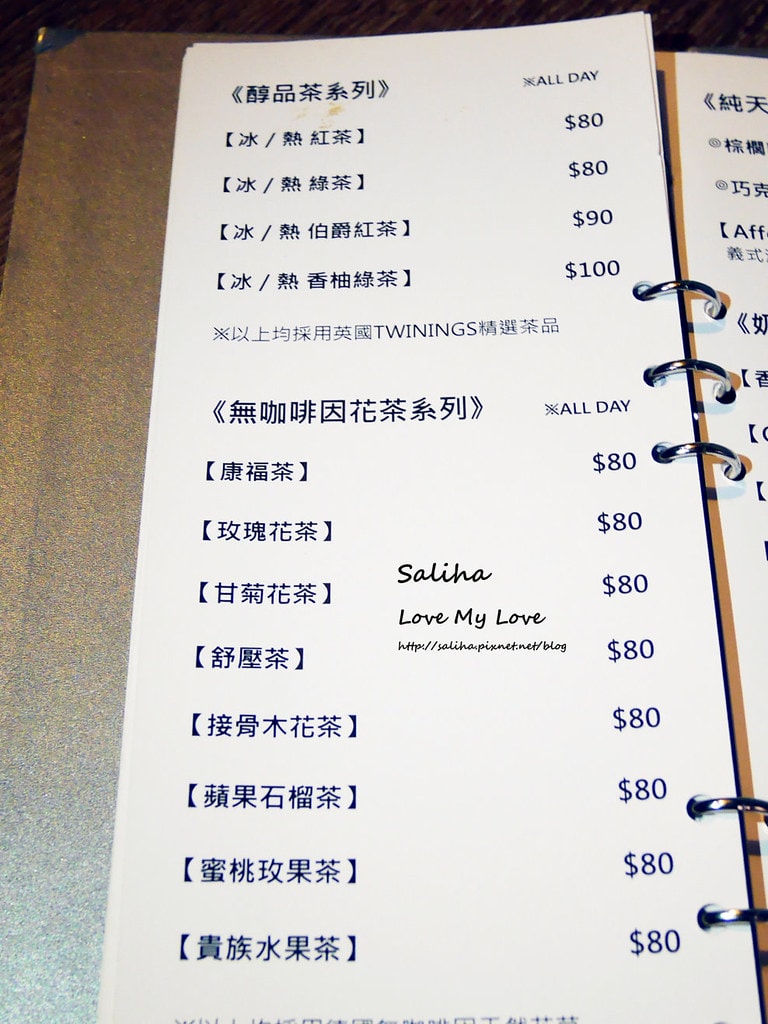 《醇品茶系列》 ※ALL DAY
【冰 / 熱 紅茶】 $80
【冰 / 熱 綠茶】 $80
【冰 / 熱 伯爵紅茶】 $90
【冰 / 熱 香柚綠茶】 $100
※以上均採用英國TWININGS精選茶品
《無咖啡因花茶系列》 ※ALL DAY
【康福茶】 $80
【玫瑰花茶】 $80
【甘菊花茶】 $80
【舒壓茶】 $80
【接骨木花茶】 $80
【蘋果石榴茶】 $80
【蜜桃玫果茶】 $80
【貴族水果茶】 $80
Saliha
Love My Love
http://saliha.pixnet.net/blog
《純天
◎棕櫚
◎巧克
【Aff
義式
《奶
【香